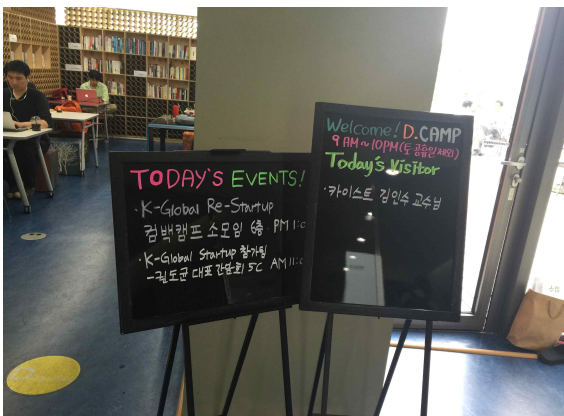 TODAY'S EVENTS!
· K-Global Re-Startup
컴백캠프 소모임 6층 PM 1:0
· K-Global Startup 참가팀
- 권도균 대표 간담회 5C AM 11:0
Welcome! D.CAMP
9 AM ~ 10PM (토 공휴일 제외)
Today's Visitor
· 카이스트 김인수 교수님